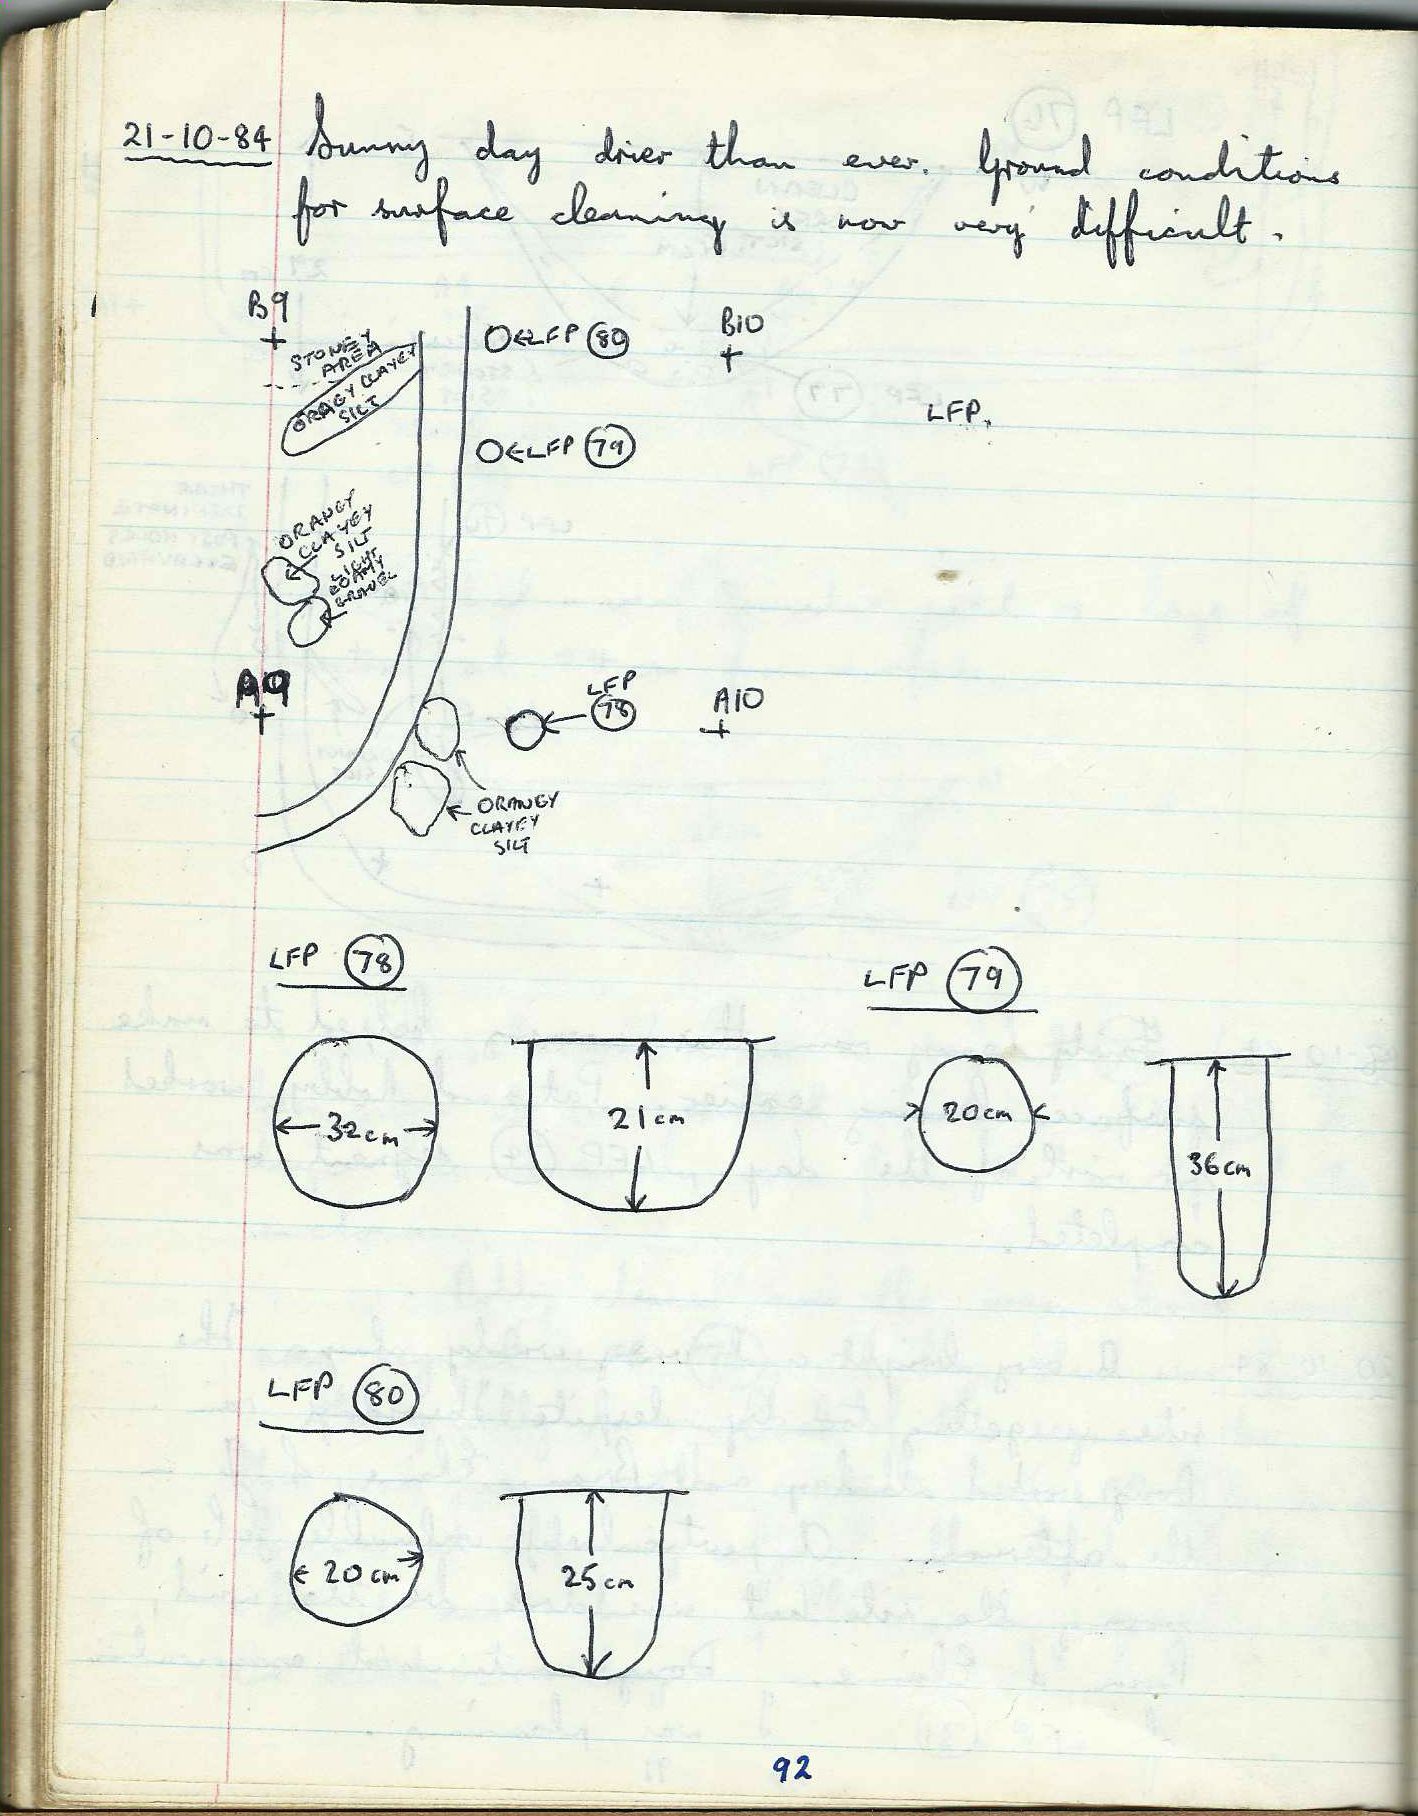 21-10-84 Sunny day drier than ever. Ground conditions
for surface cleaning is now very difficult.
B9
STONEY
AREA
ORAGY CLAYEY
SILT
LFP 80
B10
LFP.
LFP 79
ORANGY
CLAYEY
SILT
LIGHT
LOAMY
GRAVEL
A9
LFP
78
A10
ORANGY
CLAYEY
SILT
LFP 78
32cm
21cm
LFP 79
20cm
36cm
LFP 80
20cm
25cm
92